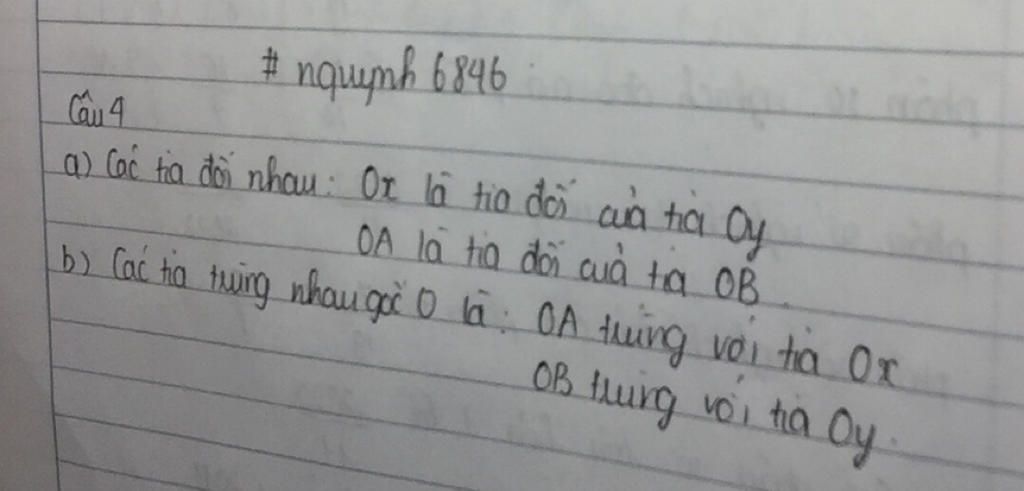 # nquynh 6846
Câu 4
a) Các tia đối nhau: Ox là tia đối của tia Oy
OA là tia đối của tia OB.
b) Các tia trùng nhau gốc O là: OA trùng với tia Ox
OB trùng với tia Oy.